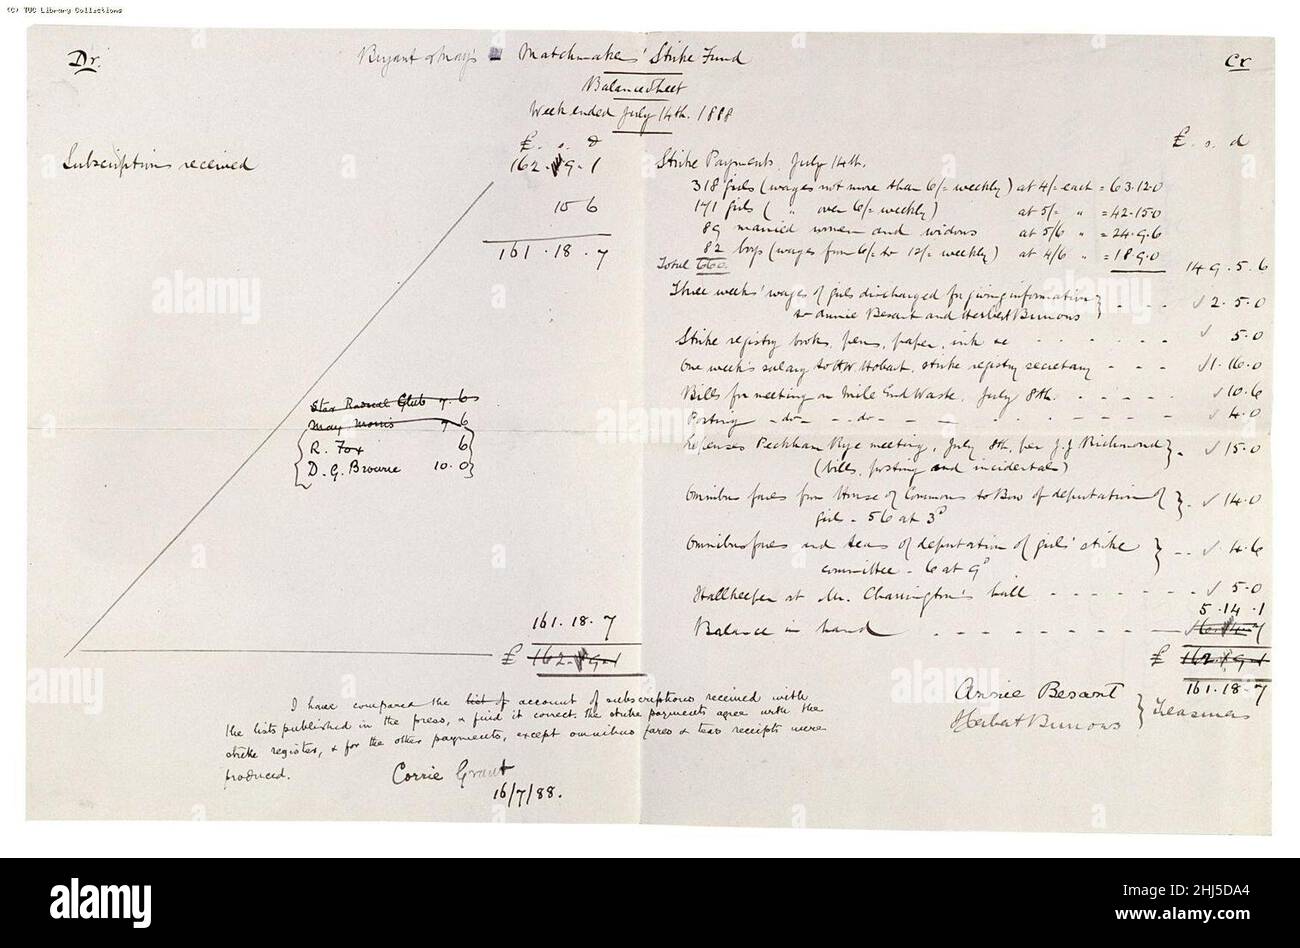 (C) TUC Library Collections
Dr.
Bryant & May's Matchmakers' Strike Fund
Cr
Balance Sheet
Week ended July 14th. 1888
£. s. d
£. s. d
Subscriptions received
162. 9. 1
10 6
161. 18. 7
Star Radical Club 7. 6
May Morris 7 6
R. Fox 6
D. G. Browne 10. 0
161. 18. 7
£ 162. 9. 1
Strike Payments, July 14th.
318 girls (wages not more than 6/= weekly) at 4/= each = 63.12.0
171 girls ( " over 6/= weekly) at 5/= " = 42.15.0
89 married women and widows at 5/6 " = 24.9.6
82 boys (wages from 6/= to 12/= weekly) at 4/6 " = 18.9.0
Total 660.
149. 5. 6
Three weeks' wages of girls discharged for giving information
to Annie Besant and Herbert Burrows
} - - - ✓ 2. 5. 0
Strike registry books, pens, paper, ink &c - - - - - - ✓ 5. 0
One week's salary to H.W. Hobart, strike registry secretary - - - ✓ 1. 16. 0
Bills for meeting on Mile End Waste, July 8th. - - - - - ✓ 10. 6
Posting - do - - do - - - - ✓ 4. 0
Expenses Peckham Rye meeting, July 8th, per J.J Richmond } - ✓ 15. 0
(bills, posting and incidental)
Omnibus fares from House of Commons to Bow of deputation of
girls - 56 at 3d
} - ✓ 14. 0
Omnibus fares and teas of deputation of girls' strike
committee - 6 at 9d
} - - ✓ 4. 6
Hallkeeper at Mr. Charrington's hall - - - - - - - - ✓ 5. 0
5. 14. 1
Balance in hand - - - - - - - -
£ 162. 9. 1
161. 18. 7
Annie Besant
Herbert Burrows
} Treasurers
I have compared the list of account of subscriptions received with
the lists published in the press, & find it correct. The strike payments agree with the
strike register, & for the other payments, except omnibus fares & teas receipts were
produced.
Corrie Grant
16/7/88.
alamy
alamy
alamy
alamy
a
a
a
a
alamy
Image ID: 2H5J5DA4
www.alamy.com